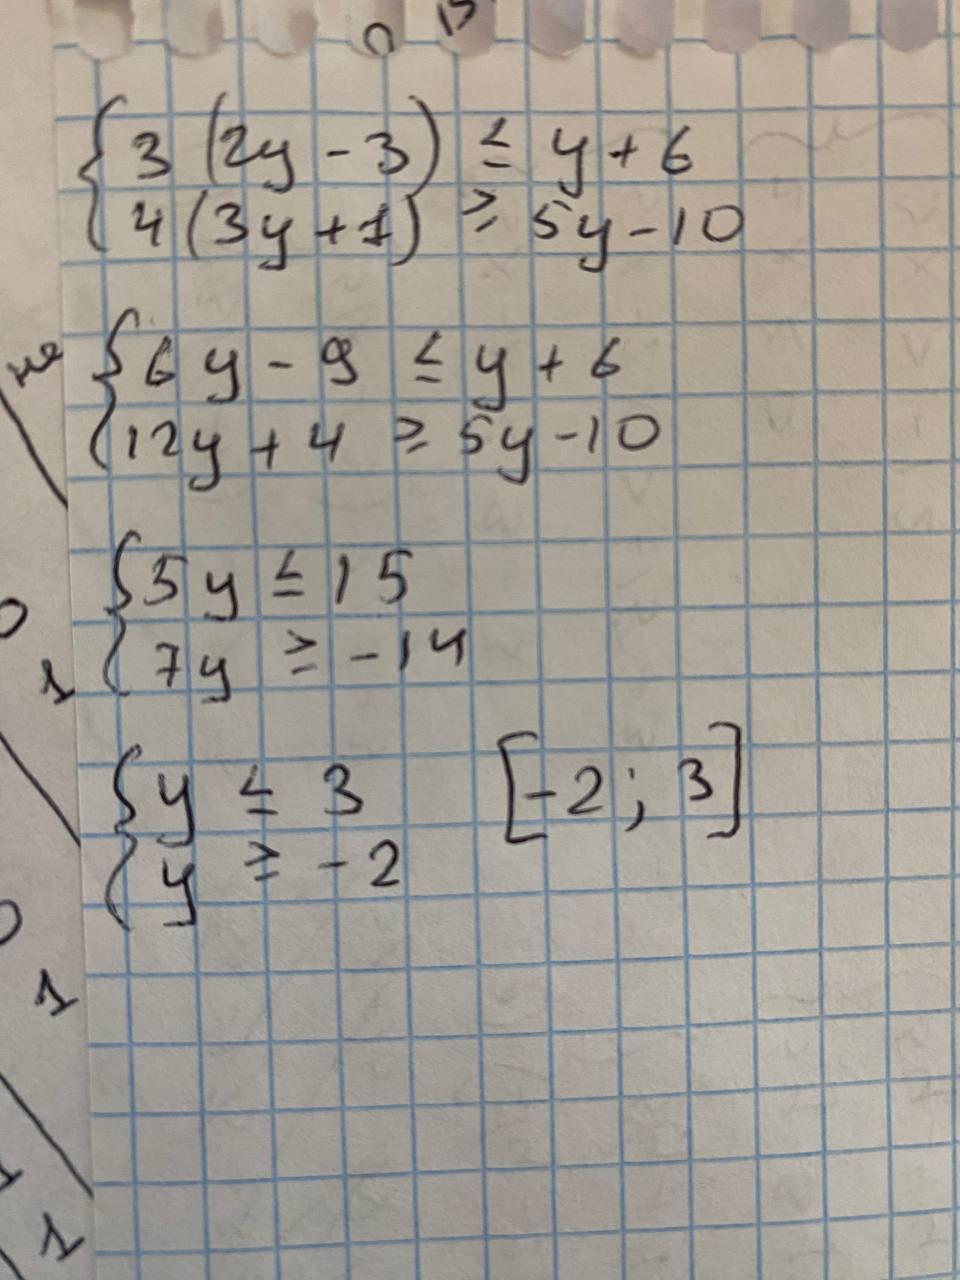 { 3 (2y - 3) ≤ y + 6
4 (3y + 1) ≥ 5y - 10
{ 6y - 9 ≤ y + 6
12y + 4 ≥ 5y - 10
{ 5y ≤ 15
7y ≥ -14
{ y ≤ 3 [-2; 3]
y ≥ -2
не
1
1
1